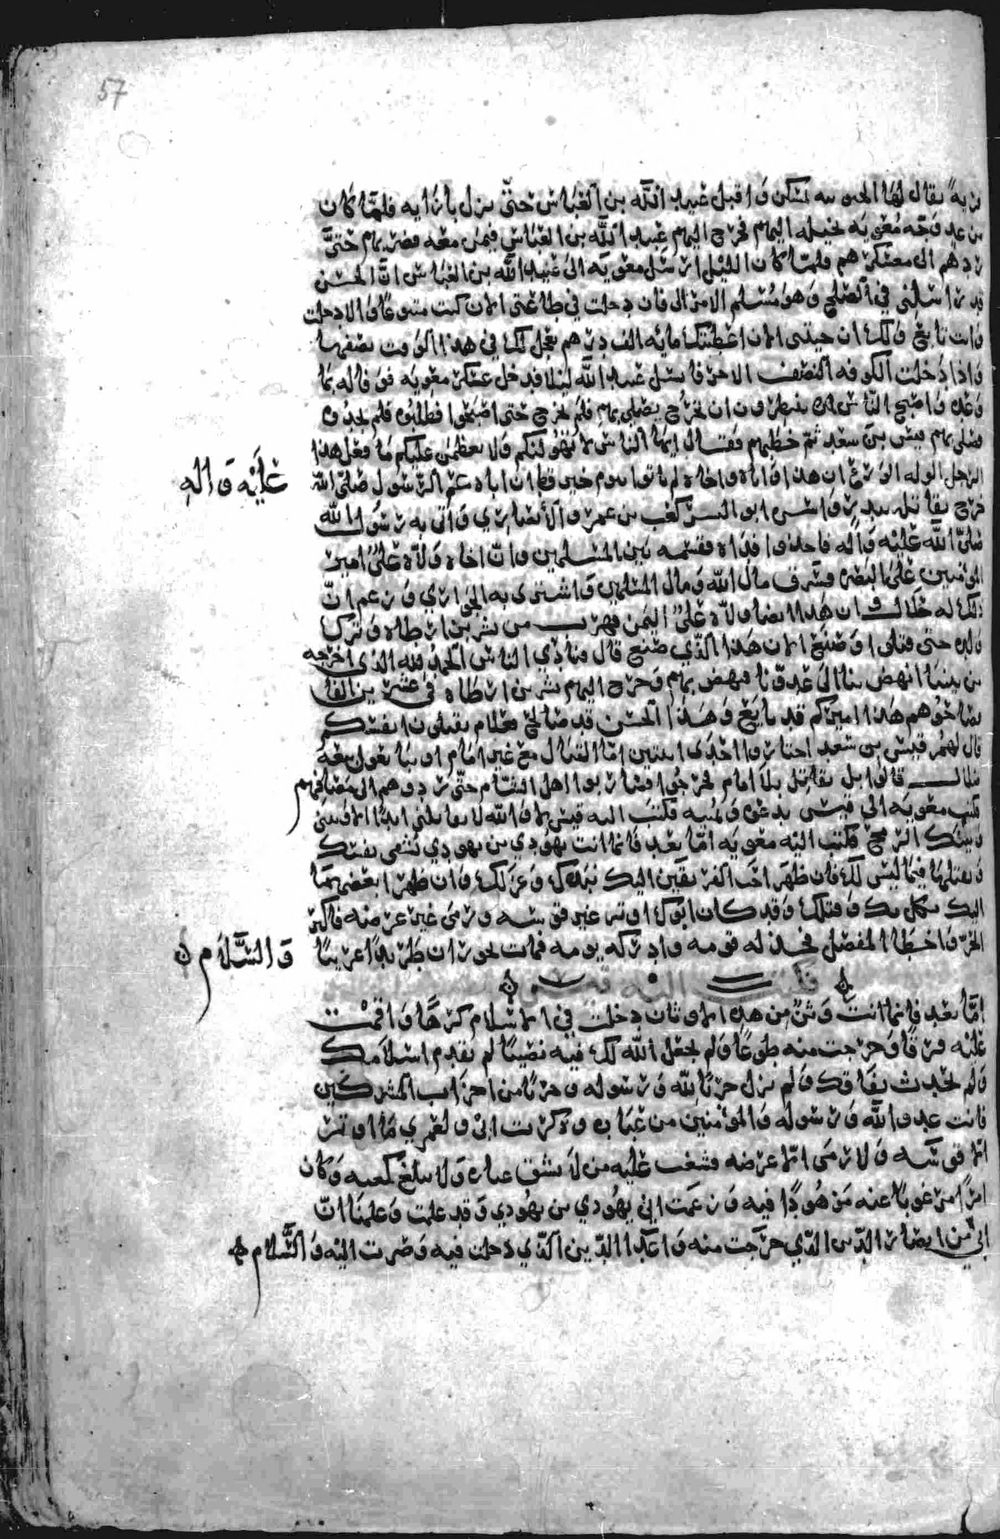 57
قرية يقال لها الحبوبيه بمسكن واقبل عبيد الله بن العباس حتى نزل بازايه فلما كان
من غد وجه معويه بخيله اليهم فخرج اليهم عبيد الله بن العباس فيمن معه فضربهم حتى
ردهم الى معسكرهم فلما كان الليل ارسل معويه الى عبيد الله بن العباس ان الحسن
قد راسلني في الصلح وهو مسلم الامر الي فان دخلت في طاعتي الان كنت متبوعا والا دخلت
وانت تابع ولك ان جيتني الان اعطيتك مايه الف درهم يعجل لك في هذا الوقت نصفها
واذا دخلت الكوفه النصف الاخر فانسل عبيد الله ليلا فدخل عسكر معويه فوفا له بما
وعده واصبح الناس ينتظرون ان يخرج يصلي بهم فلم يخرج حتى اصبحوا فطلبوه فلم يجدوه
فصلى بهم قيس بن سعد ثم خطبهم فقال ايها الناس لا يهولنكم ولا يعظمن عليكم ما فعل هذا
الرجل الوله الورع ان هذا واباه واخاه لم ياتوا بيوم خير قط ان اباه عم الرسول صلى الله
عليه واله
خرج يقاتله ببدر واسره ابو اليسر كعب بن عمرو الانصاري واتى به رسول الله
صلى الله عليه واله فاخذوا فداه فقسمه بين المسلمين وان اخاه ولاه علي امير
المومنين على البصره فسرق مال الله ومال المسلمين واشترى به الجواري وزعم ان
ذلك له حلال وان هذا ايضا ولاه علي اليمن فهرب من بسر بن ارطاه وترك
ولده حتى قتلوا وصنع الان هذا الذي صنع قال فنادي الناس الحمد لله الذي اخرجه
من بيننا انهض بنا الى عدونا فنهض بهم وخرج اليهم بسر بن ارطاه في عشرين الفا
فصاحوا هم هذا اميركم قد بايع وهذا الحسن قد صالح فعلام تقتلون انفسكم
قال لهم قيس بن سعد اختاروا احدى اثنتين اما القتال مع غير امام او تبايعون بيعة
ضلال قالوا بل نقاتل بلا امام فخرجوا فضاربوا اهل الشام حتى ردوهم الى مصافهم
كتب معويه الى قيس يدعوه ويمنيه فكتب اليه قيس لا والله لا تلقاني ابدا الا وبيني
وبينك الرمح فكتب اليه معويه اما بعد فانما انت يهودي بن يهودي تشقي نفسك
وتقتلها فيما ليس لك فان ظهر احب الفريقين اليك نبذك وعزلك وان ظهر ابغضهما
اليك نكل بك وقتلك وقد كان ابوك اوتر غير قوسه ورمى غير عرضه فاكثر
الحز واخطا المفصل فخذله قومه وادركه يومه فمات بحوران طريدا غريبا
والسلام
فكتب اليه قيس
اما بعد فانما انت وثن من هذه الاوثان دخلت في الاسلام كرها واقمت
عليه فرقا وخرجت منه طوعا ولم يجعل الله لك فيه نصيبا لم يقدم اسلامك
ولم يحدث نفاقك ولم تزل حربا لله ورسوله وحزبا من احزاب المشركين
فانت عدو الله ورسوله والمومنين من عباده وذكرت ابي ولعمري ما اوتر
الا قوسه ولا رمى الا عرضه فشغب عليه من لا يشق غباره ولا يبلغ كعبه وكان
امرا مرغوبا عنه مزهودا فيه وزعمت اني يهودي بن يهودي وقد علمت وعلمنا ان
ابي من انصار الدين الذي خرجت منه واعدا الدين الذي دخلت فيه وصرت اليه والسلام